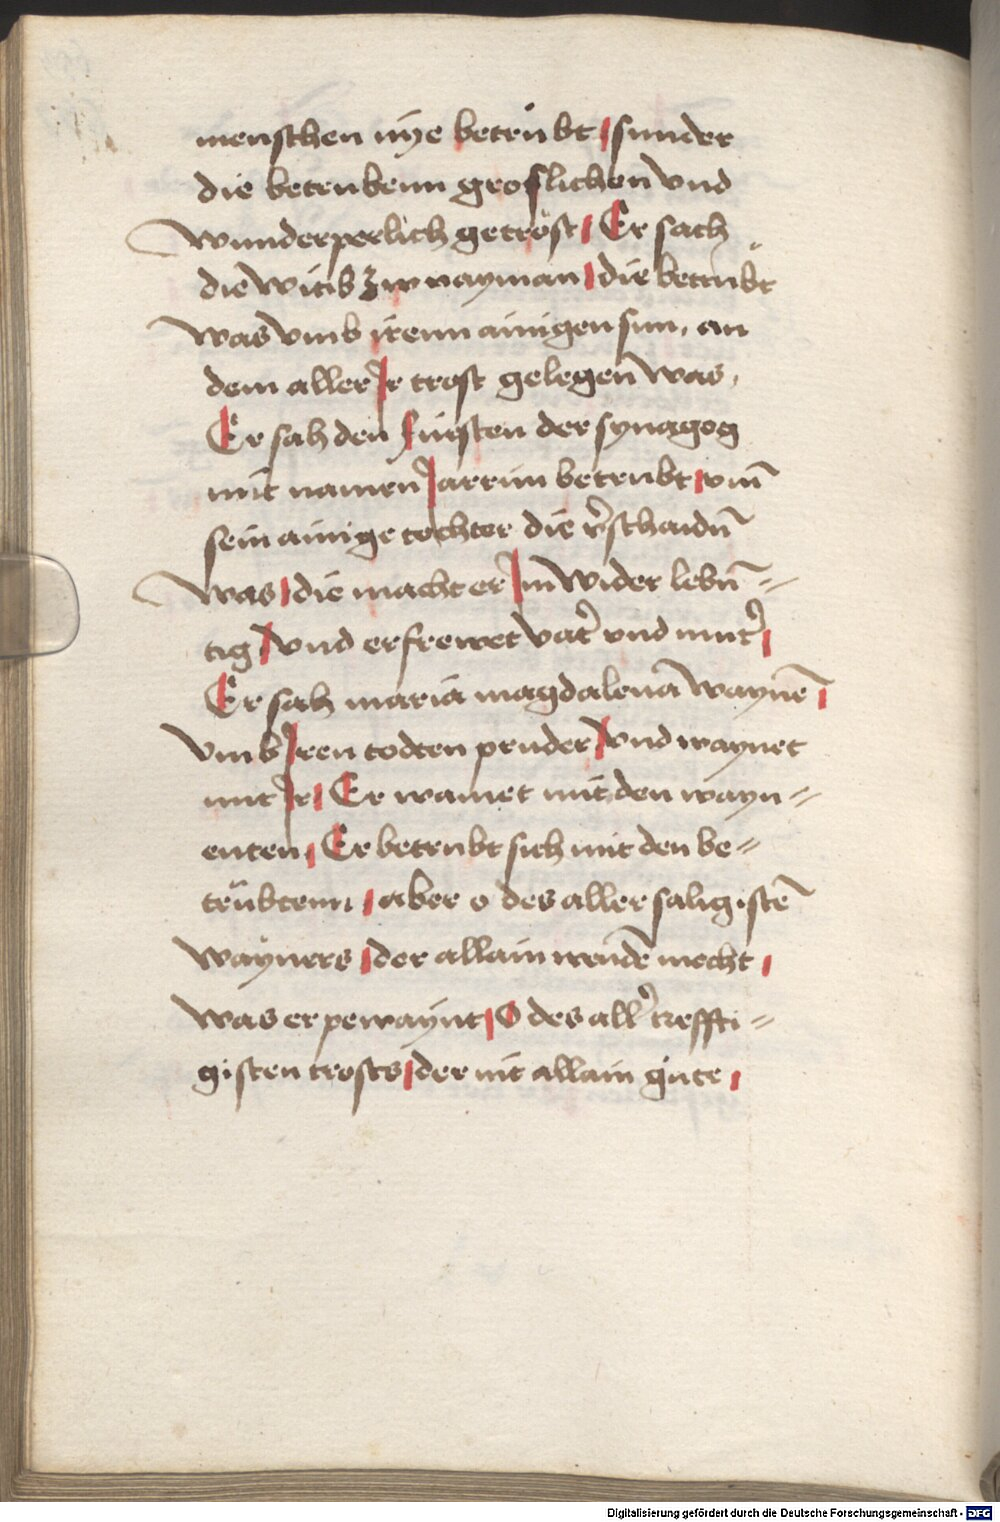 menschen nÿe betrůbt / sunder
die betrubenn groslichen vnd
wunderperlich getröst / Er sach
die witib zw nayman / die betrübt
was vmb irenn ainigen sun, an
dem aller Ir trost gelegen was,
Er sah den fursten der synagog
mit namen Jarrim betrubt / vm̄
sein ainige tochter die v̓schaidn̄
was / die macht er Im wider lebn̄=
tig / vnd erfrewet vat̓ vnd mut̓ /
Er sah maria magdalena waynē /
vmb Iren todten pruder / vnd waynet
mit Ir / Er wainet mit den wayn=
enten / Er betrubt sich mit den be=
trübtenn / aber o des aller saligistē
wayners / der allain wendē mocht /
was er pewaynt / O des all̓ creffti=
gisten trosts / der nit allain gute /
Digitalisierung gefördert durch die Deutsche Forschungsgemeinschaft - DFG